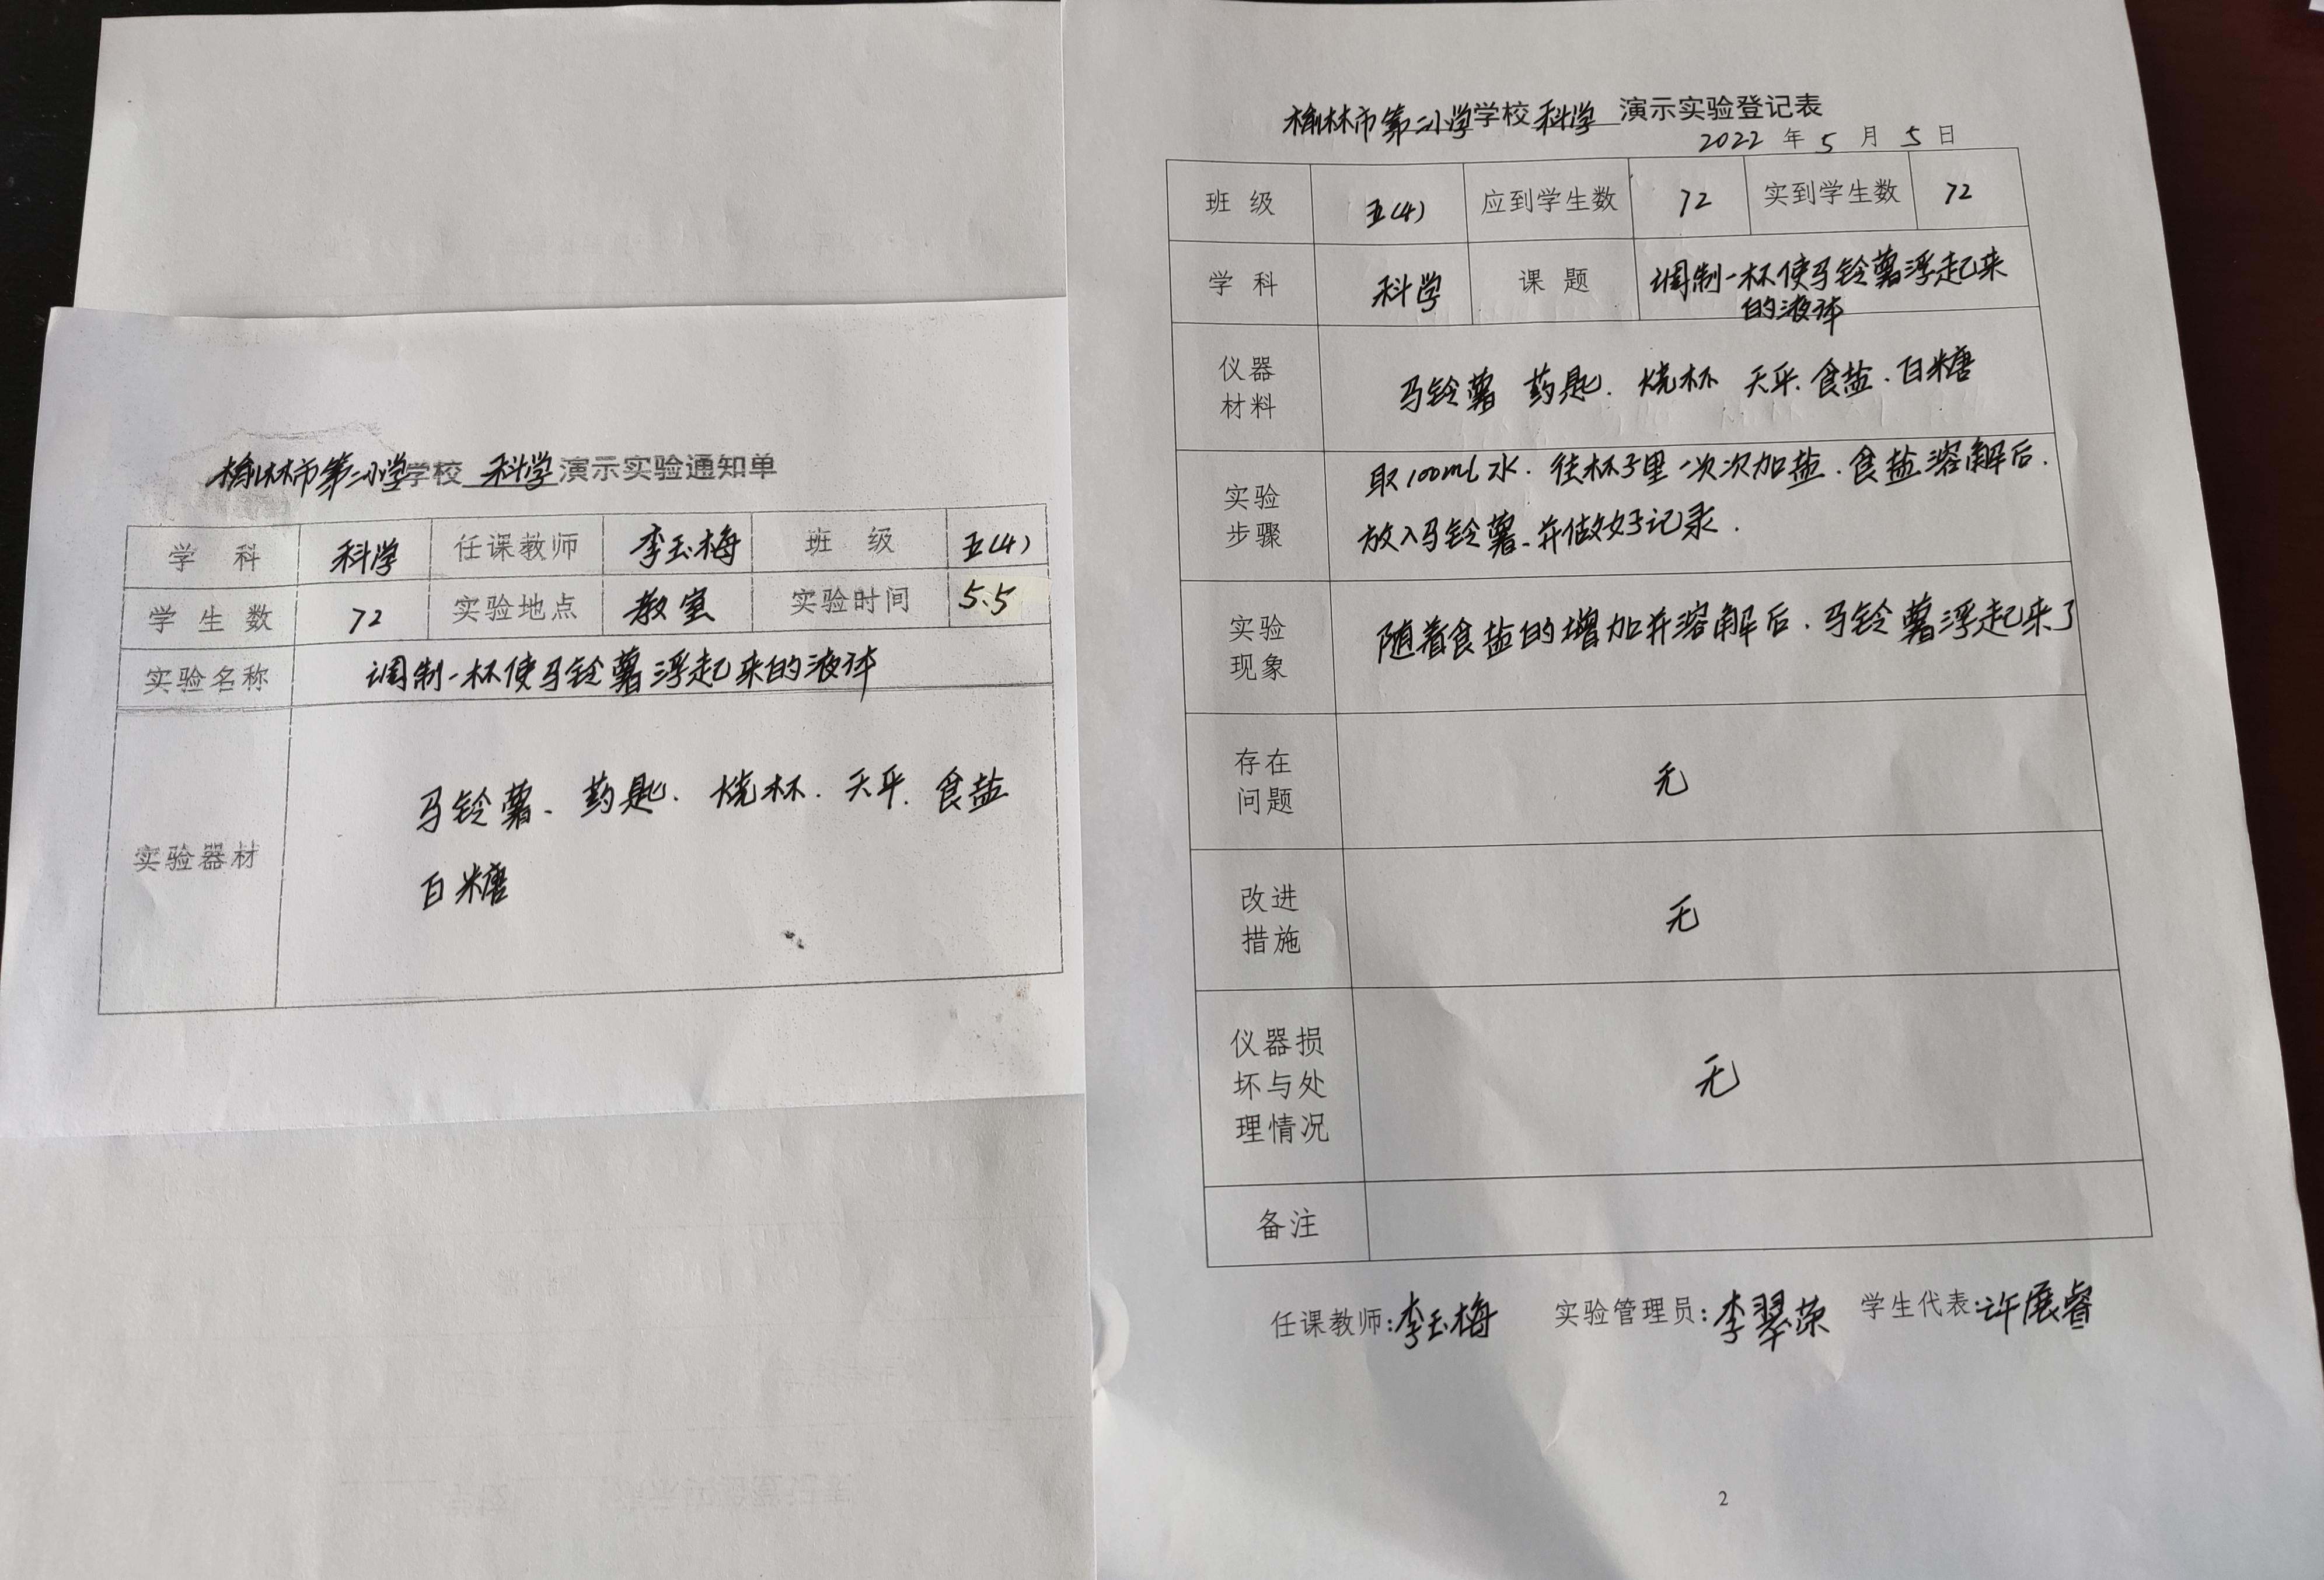 榆林市第二小学学校 科学 演示实验通知单
学 科 科学 任课教师 李玉梅 班 级 五(4)
学 生 数 72 实验地点 教室 实验时间 5.5
实验名称 调制一杯使马铃薯浮起来的液体
实验器材 马铃薯、药匙、烧杯、天平、食盐
白糖
榆林市第二小学学校 科学 演示实验登记表
2022 年 5 月 5 日
班 级 五(4) 应到学生数 72 实到学生数 72
学 科 科学 课 题 调制一杯使马铃薯浮起来
的液体
仪器
材料
马铃薯 药匙、烧杯 天平、食盐、白糖
实验
步骤
取100ml水、往杯子里一次次加盐、食盐溶解后、
放入马铃薯、并做好记录.
实验
现象
随着食盐的增加并溶解后、马铃薯浮起来了
存在
问题
无
改进
措施
无
仪器损
坏与处
理情况
无
备注
任课教师:李玉梅 实验管理员:李翠荣 学生代表:许展睿
2